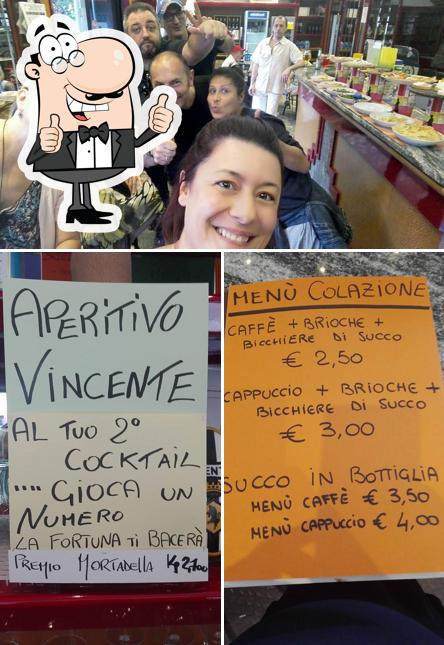 APERITIVO
VINCENTE
AL TUO 2°
COCKTAIL
.... GIOCA UN
NUMERO
LA FORTUNA TI BACERÀ
PREMIO MORTADELLA Kg 2,700
MENÙ COLAZIONE
CAFFÈ + BRIOCHE +
BICCHIERE DI SUCCO
€ 2,50
CAPPUCCIO + BRIOCHE +
BICCHIERE DI SUCCO
€ 3,00
SUCCO IN BOTTIGLIA
MENÙ CAFFÈ € 3,50
MENÙ CAPPUCCIO € 4,00